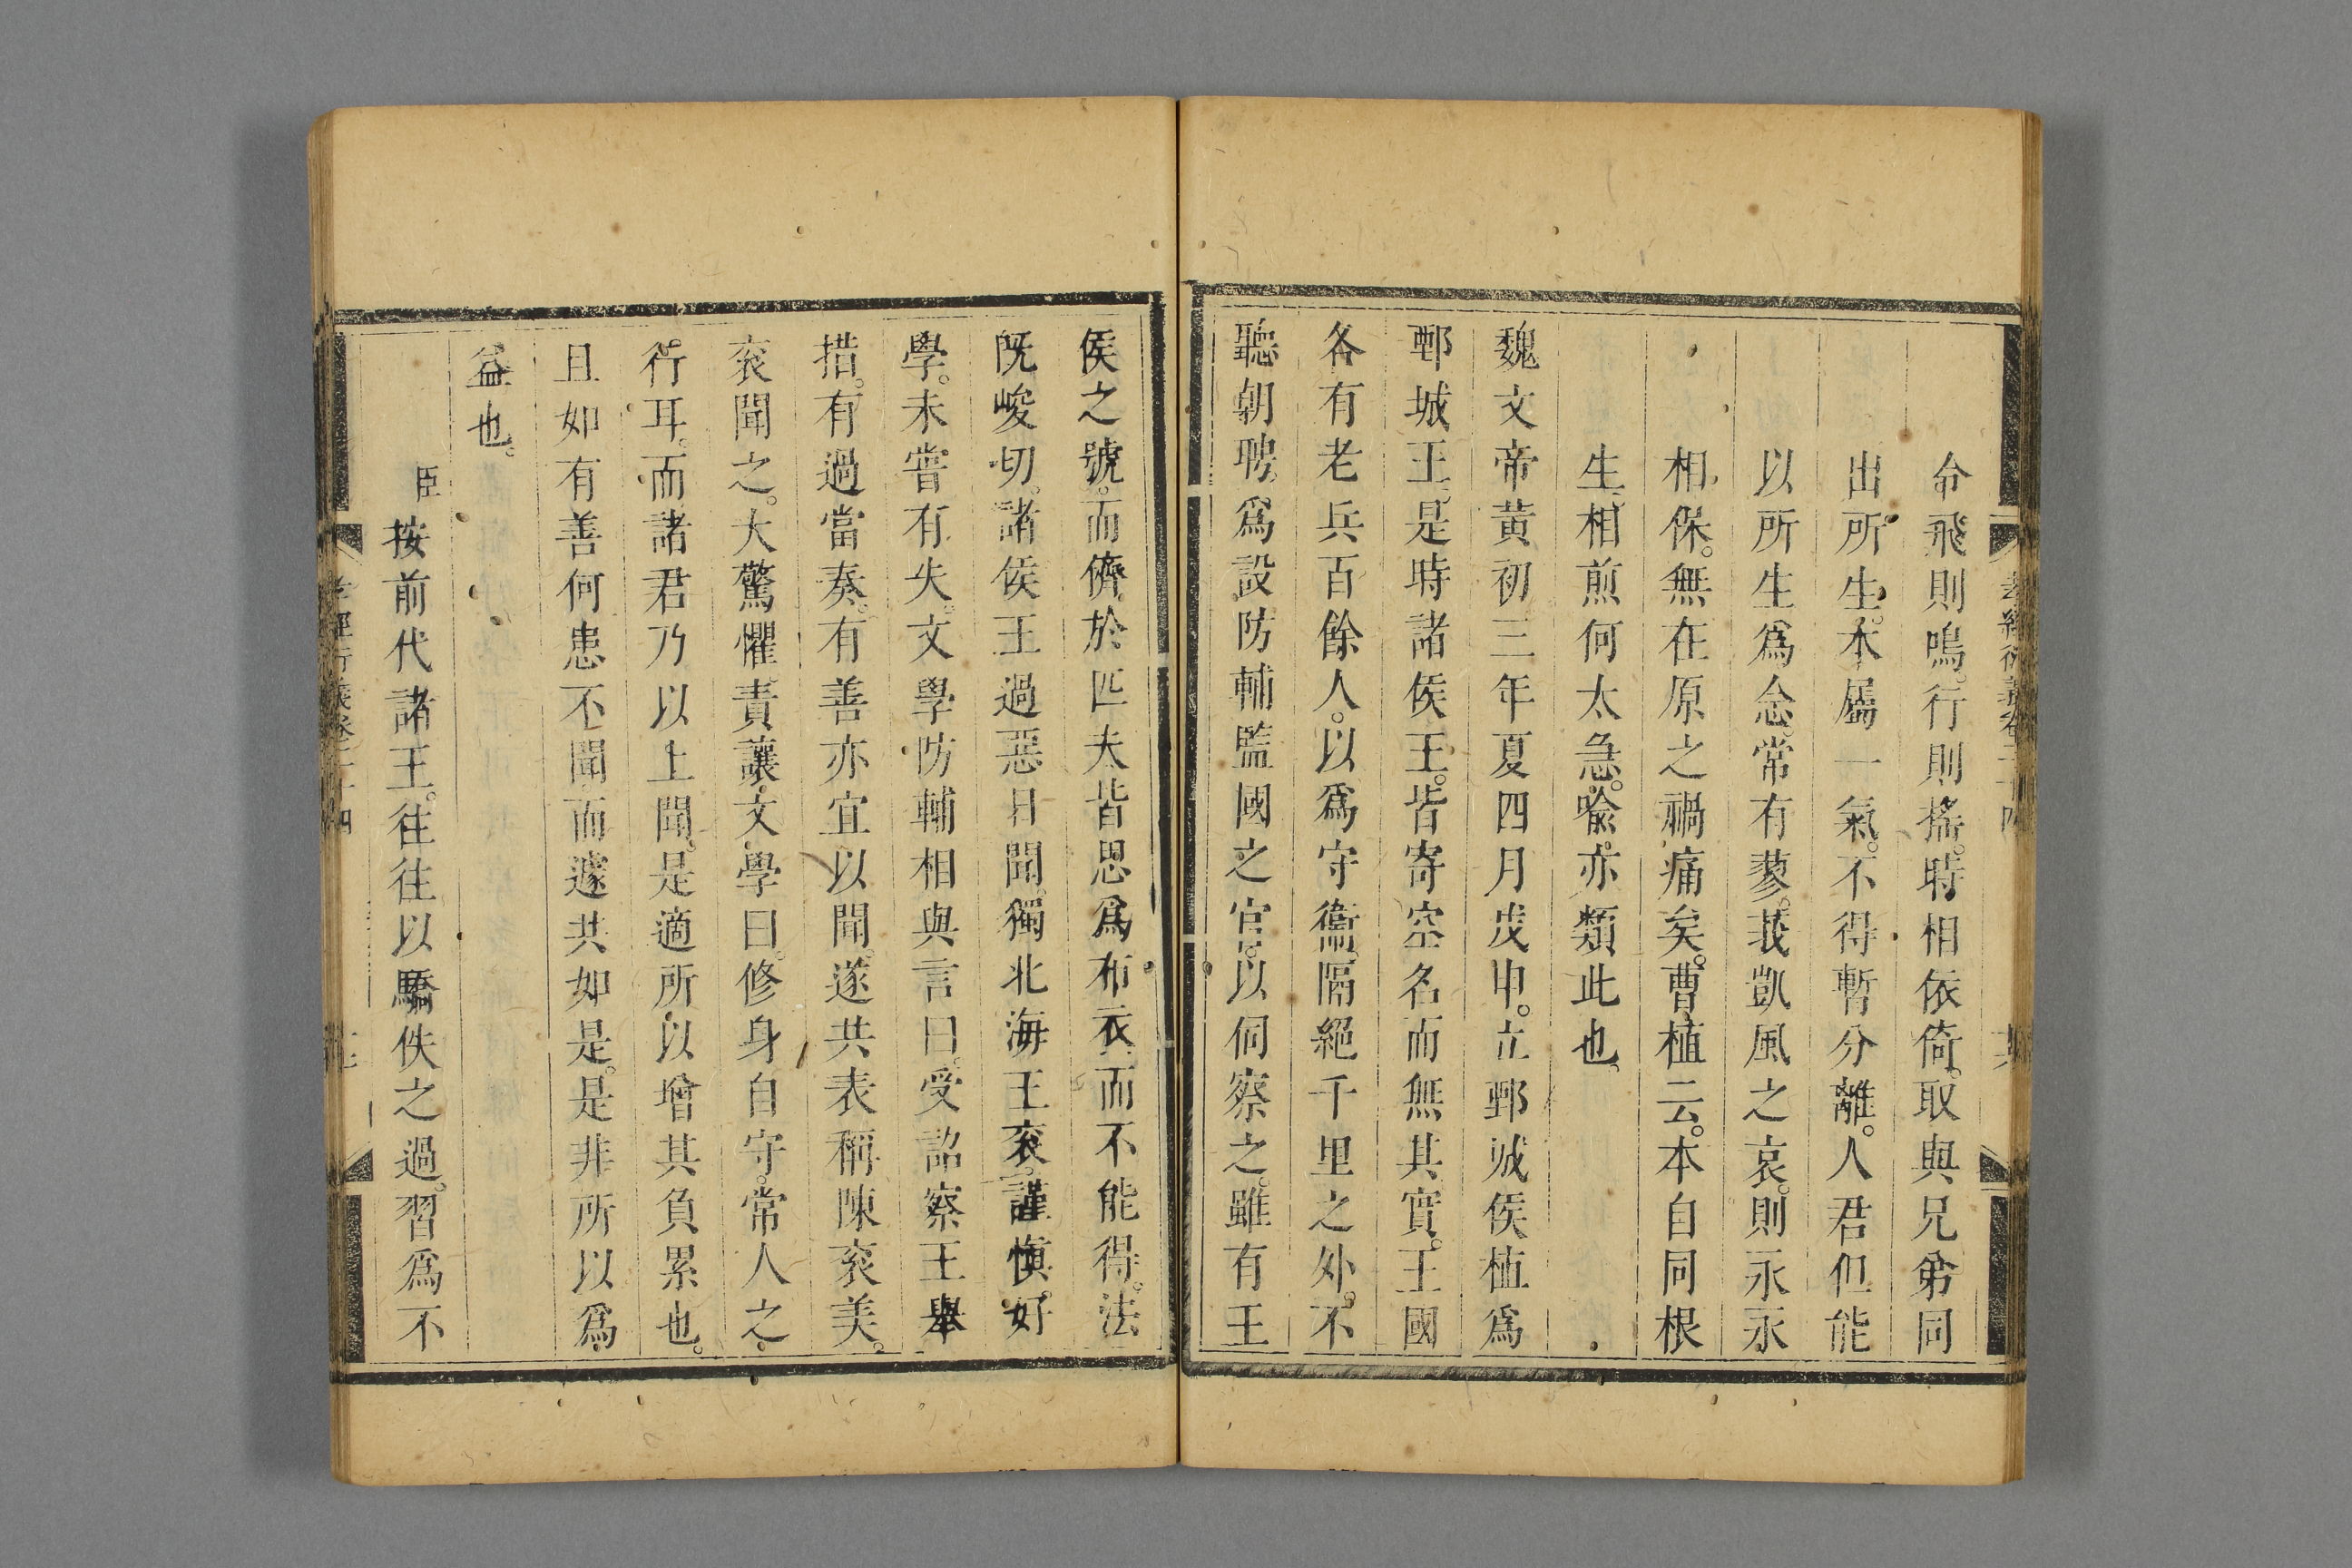 令飛則鳴。行則搖。時相依倚。取與兄弟同
出所生。本屬一氣。不得暫分離。人君但能
以所生爲念。常有蓼莪凱風之哀。則永永
相保。無在原之禍痛矣。曹植云。本自同根
生。相煎何太急。喩亦類此也。
魏文帝黃初三年夏四月戊申。立鄄城侯植爲
鄄城王。是時諸侯王。皆寄空名而無其實。王國
各有老兵百餘人。以爲守衞。隔絕千里之外。不
聽朝聘。爲設防輔監國之官。以伺察之。雖有王
侯之號。而儕於匹夫。皆思爲布衣。而不能得。法
旣峻切。諸侯王過惡日聞。獨北海王袞。謹愼。好
學。未嘗有失。文學防輔相與言曰。受詔察王舉
措。有過當奏。有善亦宜以聞。遂共表稱陳袞美。
袞聞之。大驚懼。責讓文學曰。修身自守。常人之
行耳。而諸君乃以上聞。是適所以增其負累也。
且如有善何患不聞。而遽共如是。是非所以爲
益也。
臣按前代諸王。往往以驕佚之過。習爲不
孝經衍義卷二十四